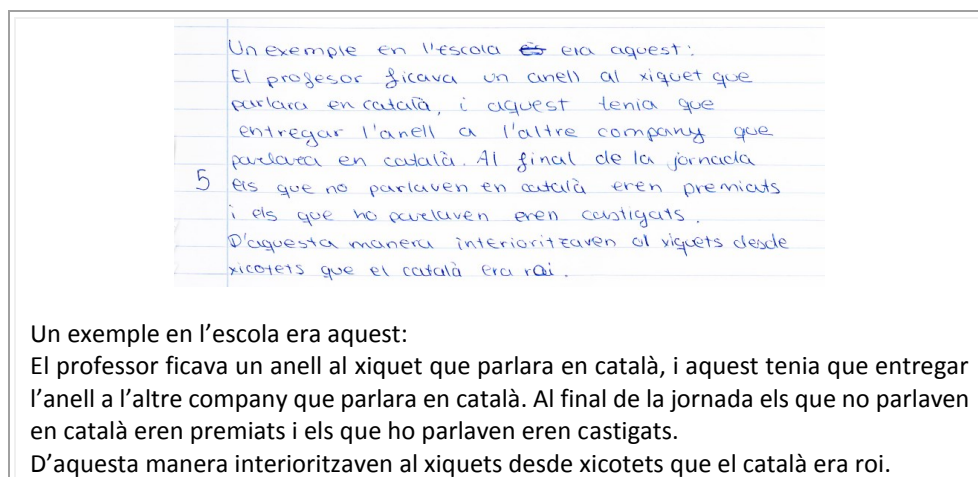 Un exemple en l'escola és era aquest:
El profesor ficava un anell al xiquet que
parlara en català, i aquest tenia que
entregar l'anell a l'altre company que
parlara en català. Al final de la jornada
5 els que no parlaven en català eren premiats
i els que ho parlaven eren castigats.
D'aquesta manera interioritzaven al xiquets desde
xicotets que el català era roi.
Un exemple en l’escola era aquest:
El professor ficava un anell al xiquet que parlara en català, i aquest tenia que entregar
l’anell a l’altre company que parlara en català. Al final de la jornada els que no parlaven
en català eren premiats i els que ho parlaven eren castigats.
D’aquesta manera interioritzaven al xiquets desde xicotets que el català era roi.